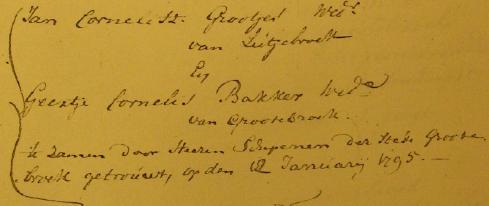 Jan Cornelisz. Grootjes Wedr.
van Lutjebroek
En
Geertje Cornelis Bakker Wede
van Grootebroek.
te zamen door Heeren Schepenen der Stede Groote-
broek getrouwt, op den 12 Januarij 1795.—